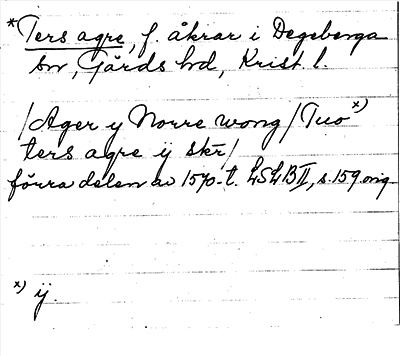 *Ters agre, f. åkrar i Degeberga
sn, Gärds hd, Krist. l.
/Ager y Norre wong/ Tuo x)
ters agre ij skr/
förra delen av 1570-t. LSLB II, s. 159 orig.
x) ij.